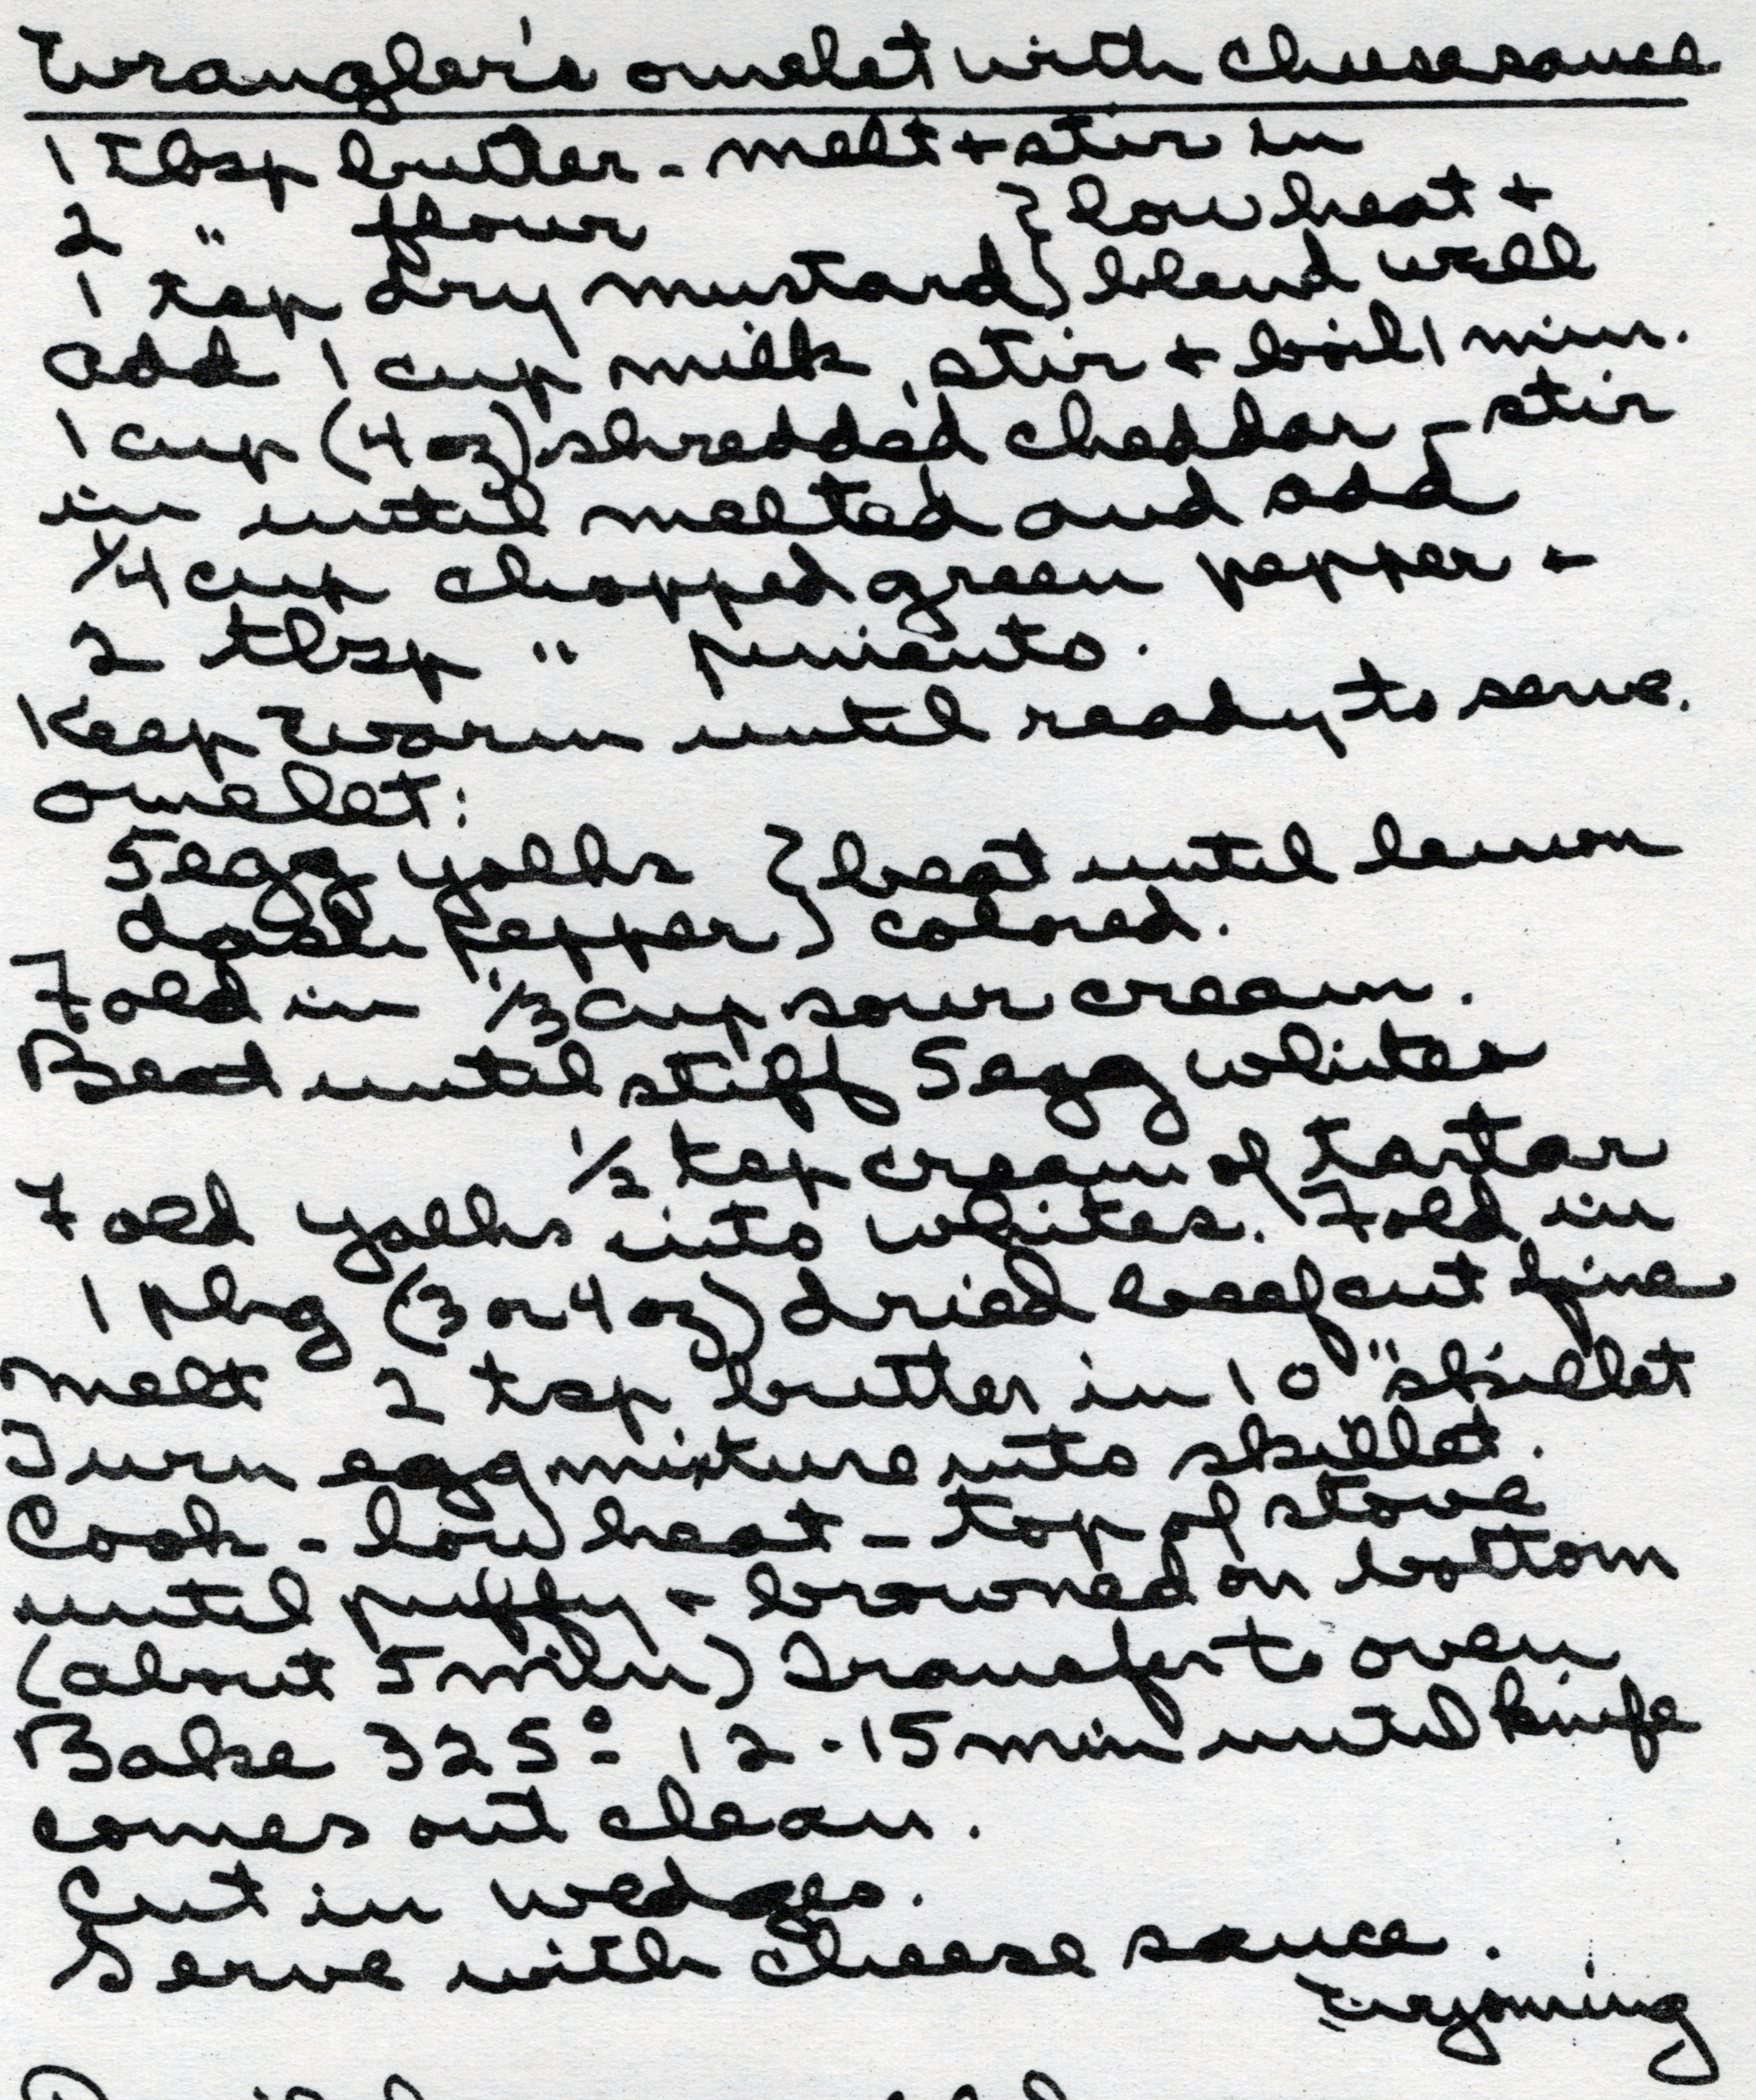 Wrangler's omelet with cheese sauce
1 Tbsp butter - melt + stir in
2 " flour } low heat +
1 tsp dry mustard } blend well
add 1 cup milk, stir + boil 1 min.
1 cup (4 oz) shredded cheddar - stir
in until melted and add
1/4 cup chopped green pepper +
2 tbsp " pimiento.
Keep warm until ready to serve.
omelet:
5 egg yolks } beat until lemon
dash pepper } colored.
Fold in 1/3 cup sour cream.
Beat until stiff 5 egg whites
1/2 tsp cream of tartar
Fold yolks into whites. Fold in
1 pkg (3 or 4 oz) dried beef cut fine
melt 2 tsp butter in 10" skillet
Turn egg mixture into skillet.
Cook - low heat - top of stove
until puffy + browned on bottom
(about 5 min) Transfer to oven
Bake 325° 12-15 min until knife
comes out clean.
Cut in wedges.
Serve with cheese sauce.
Wyoming